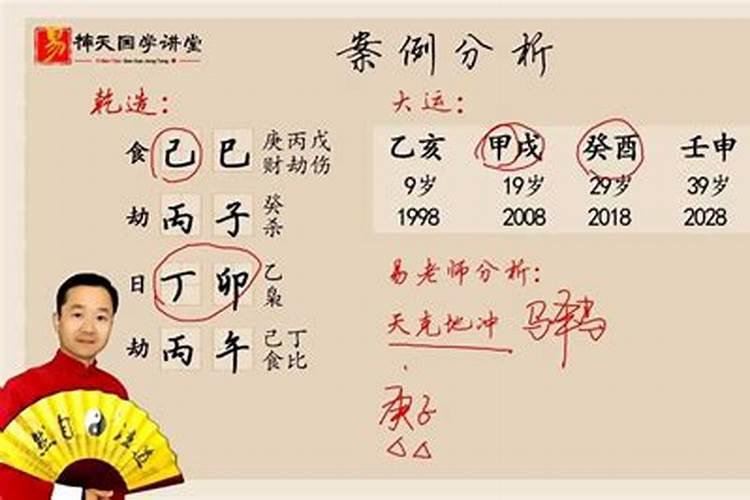 易 补天国学讲堂
案例分析
乾造：
食 己 巳 庚 丙 戊
财 劫 伤
劫 丙 子 癸
杀
日 丁 卯 乙
枭
劫 丙 午 己 丁
食 比
大运：
乙亥 甲戌 癸酉 壬申
9岁 19岁 29岁 39岁
1998 2008 2018 2028
易老师分析：
天克地冲
庚子
△△
然自法道